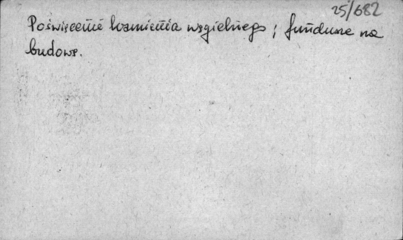 25/682
Poświęcenie kamienia węgielnego i fundusze na
budowę.